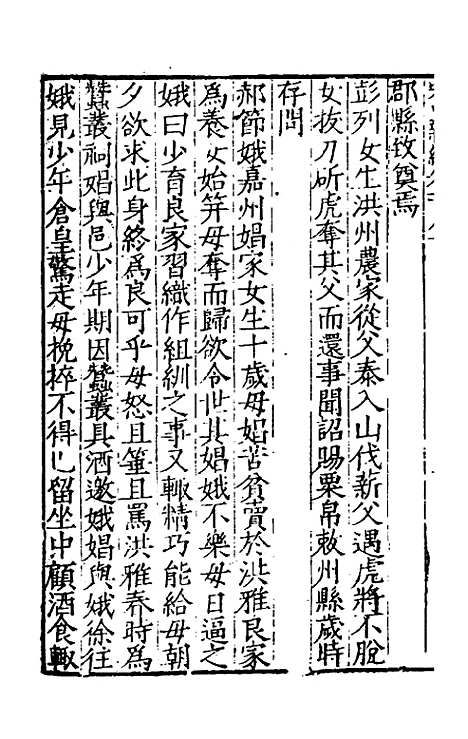 郡縣致奠焉
彭列女生洪州農家從父泰入山伐薪父遇虎將不脫
女拔刀斫虎奪其父而還事聞詔賜粟帛敕州縣歲時
存問
郝節娥嘉州娼家女生十歲母娼苦貧賣於洪雅良家
為養女始笄母奪而歸欲令世其娼娥不樂母日逼之
娥曰少育良家習織作組紃之事又輙精巧能給母朝
夕欲求此身終為良可乎母怒且箠且罵洪雅春時為
蠶叢祠娼與邑少年期因蠶叢具酒邀娥娼與娥徐往
娥見少年倉皇驚走母挽捽不得已留坐中顧酒食輙